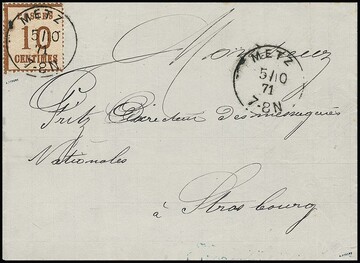 POSTES
10
CENTIMES
METZ
5/10
71
7-8N
METZ
5/10
71
7-8N
Monsieur
Fritz Directeur des messageries
Nationales
à Strasbourg